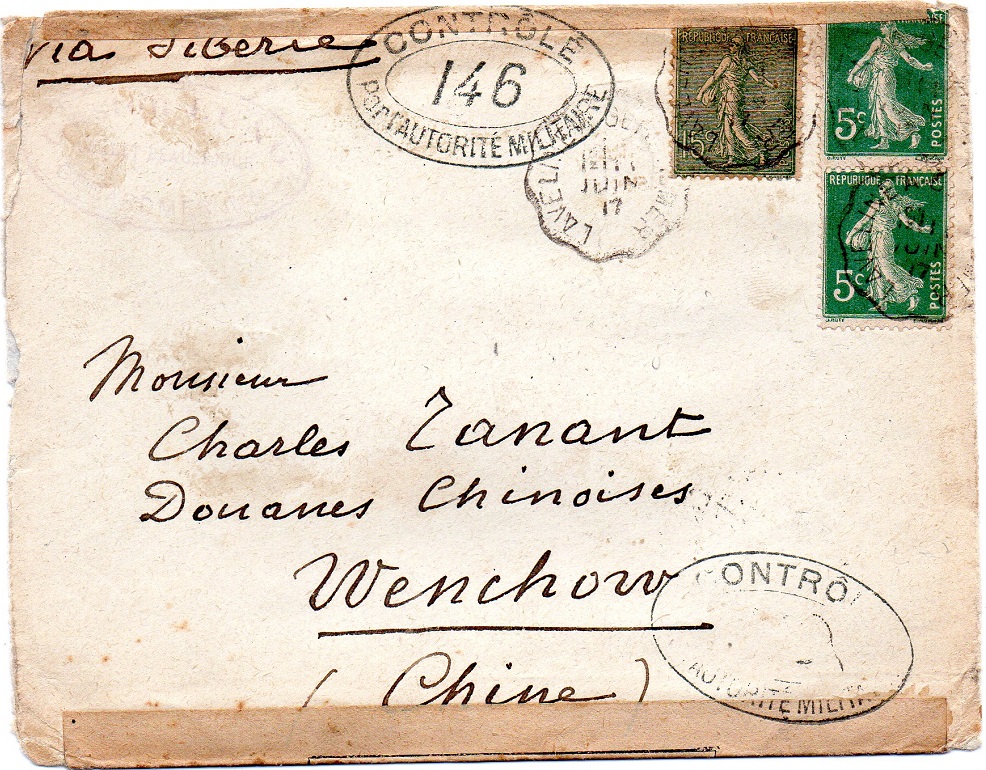 via Siberie
CONTRÔLE
146
PAR L'AUTORITÉ MILITAIRE
RÉPUBLIQUE FRANÇAISE
15c
5c
POSTES
JUIN
17
RÉPUBLIQUE FRANÇAISE
5c
POSTES
JUIN
17
Monsieur
Charles Tanant
Douanes Chinoises
Wenchow
(Chine)
CONTRÔL
AUTORITÉ MILITA